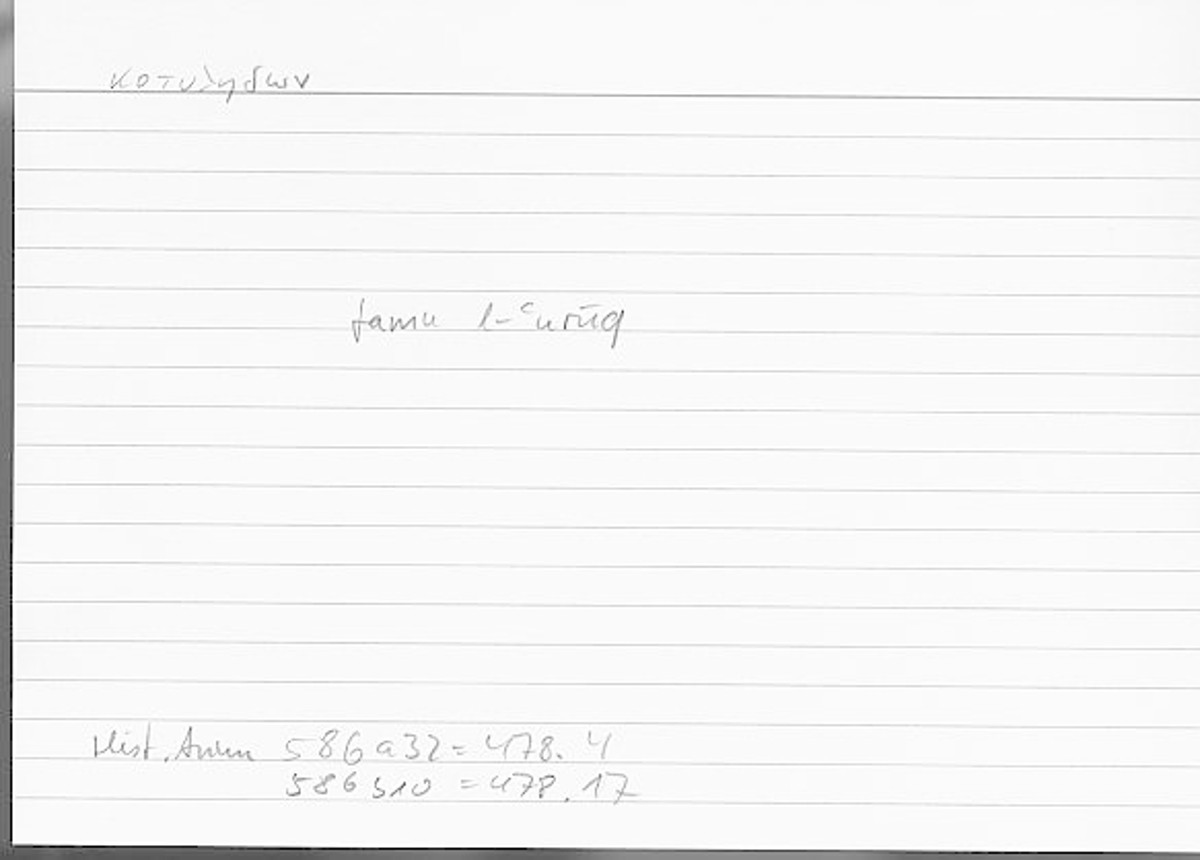 κοτυληδων
famu l-ʿurūq
Hist. Anim 586 a32 = 478. 4
586 b10 = 478. 17